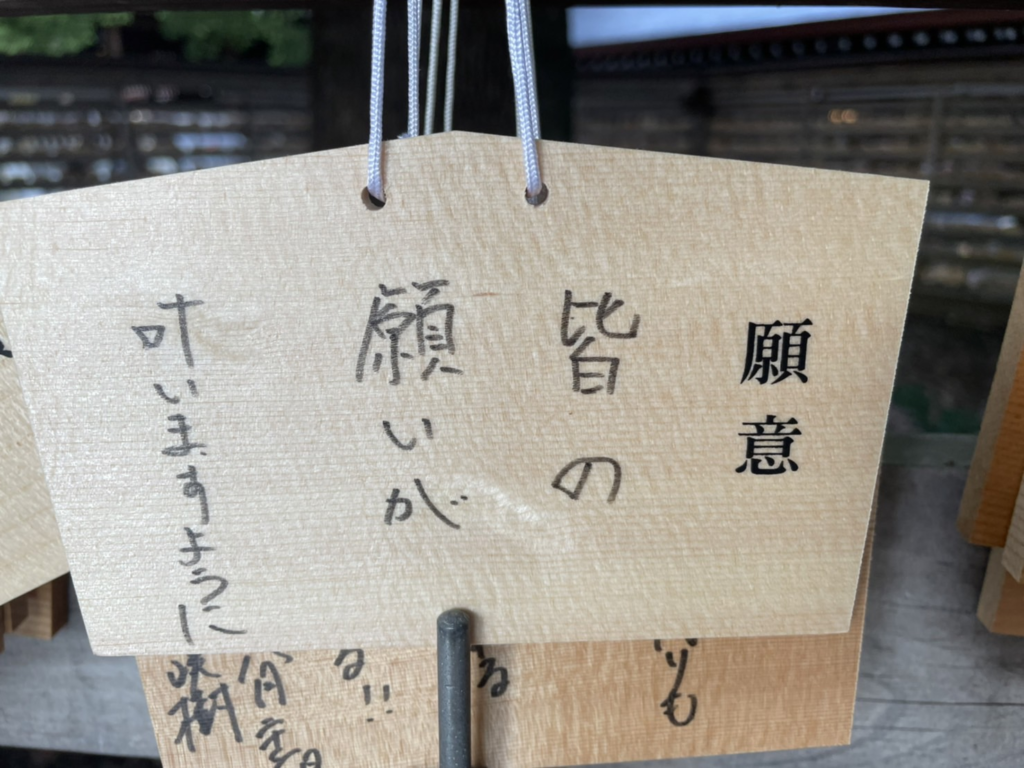 願意
皆の
願いが
叶いますように
りも
る
る!!
樹